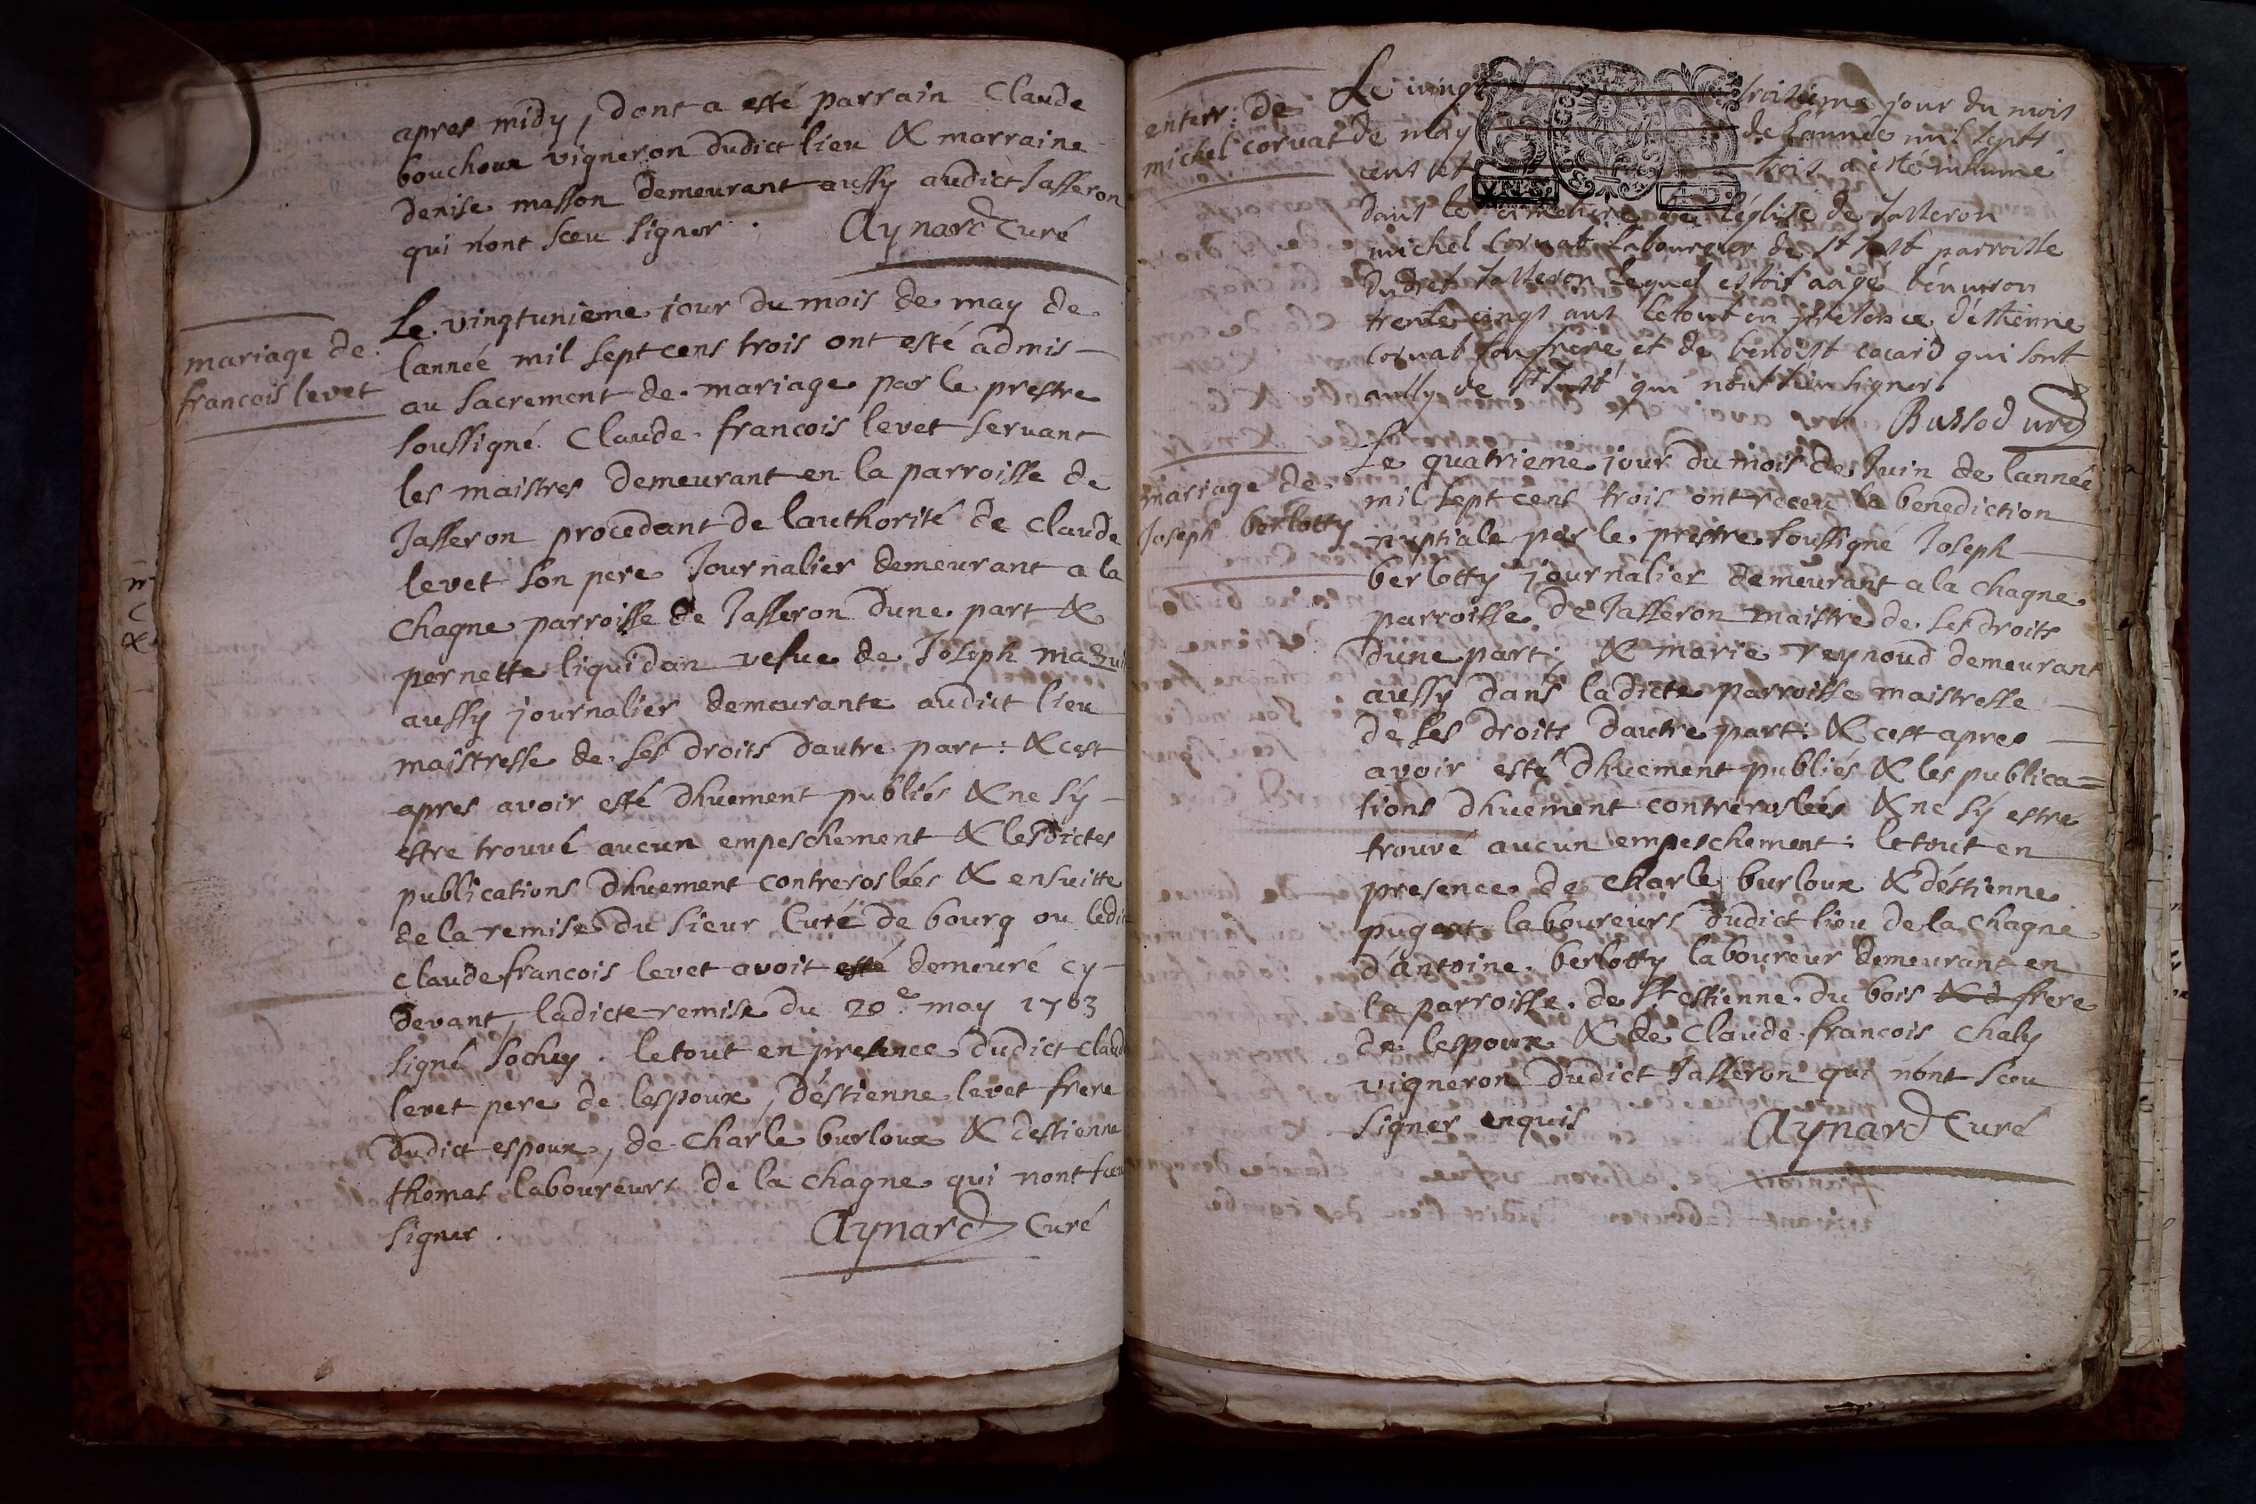 apres midy, dont a esté parrain Claude
bouchoux vigneron dudict lieu & marraine
denise masson demeurant aussy audict Jasseron
qui n'ont sceu signer. Aynard Curé
mariage de
francois levet
Le vingtunieme jour du mois de may de
lannée mil sept cens trois ont esté admis
au sacrement de mariage par le prestre
soussigné Claude francois levet servant
les maistres demeurant en la parroisse de
Jasseron procedant de lauthorité de claude
levet son pere Journalier demeurant a la
chagne parroisse de Jasseron dune part &
pernette liquidan vefue de Joseph
aussy journalier demeurante audict lieu
maistresse de ses droits dautre part: & cest
apres avoir esté dhuement publiés & ne sy
estre trouvé aucun empeschement & lesdictes
publications dhuement contreroslées & ensuitte
de la remise du sieur Curé de bourg ou ledict
claude francois levet avoit esté demeuré cy
devant, ladicte remise du 20e may 1703
signé Sochey. le tout en presence dudict claude
levet pere de lespoux, d'éstienne levet frere
dudict espoux, de charle burloux & destienne
thomas laboureurs de la chagne qui nont sceu
signer. Aynard Curé
enterr: de
michel coruat
Le vingt troisieme jour du mois
de may de lannée mil sept
cent et trois a esté inhumé
dans le cimetiere de l'église de Jasseron
michel coruat laboureur de st Just parroisse
dudict Jasseron lequel estoit aagé d'environ
trente cinqt ans le tout en presence d'estienne
coruat son frere et de benoist cocard qui sont
aussy de st Just qui n'ont sceu signer.
mariage de
Joseph berlotty
Le quatrieme jour du mois de Juin de lannée
mil sept cens trois ont receu la benediction
nuptiale par le prestre soussigné Joseph
berlotty journalier demeurant a la chagne
parroisse de Jasseron maistre de ses droits
dune part; & marie reynoud demeurant
aussy dans ladicte parroisse maistresse
de ses droits dautre part: & cest apres
avoir esté dhuement publiés & les publica=
tions dhuement contreroslées & ne sy estre
trouvé aucun empeschement: le tout en
presence de charle burloux & d'éstienne
pugeat laboureurs dudict lieu de la chagne
d'antoine berlotty laboureur demeurant en
la parroisse de st estienne du bois & d frere
de lespoux & de claude francois chaly
vigneron dudict Jasseron qui n'ont sceu
signer enquis Aynard Curé